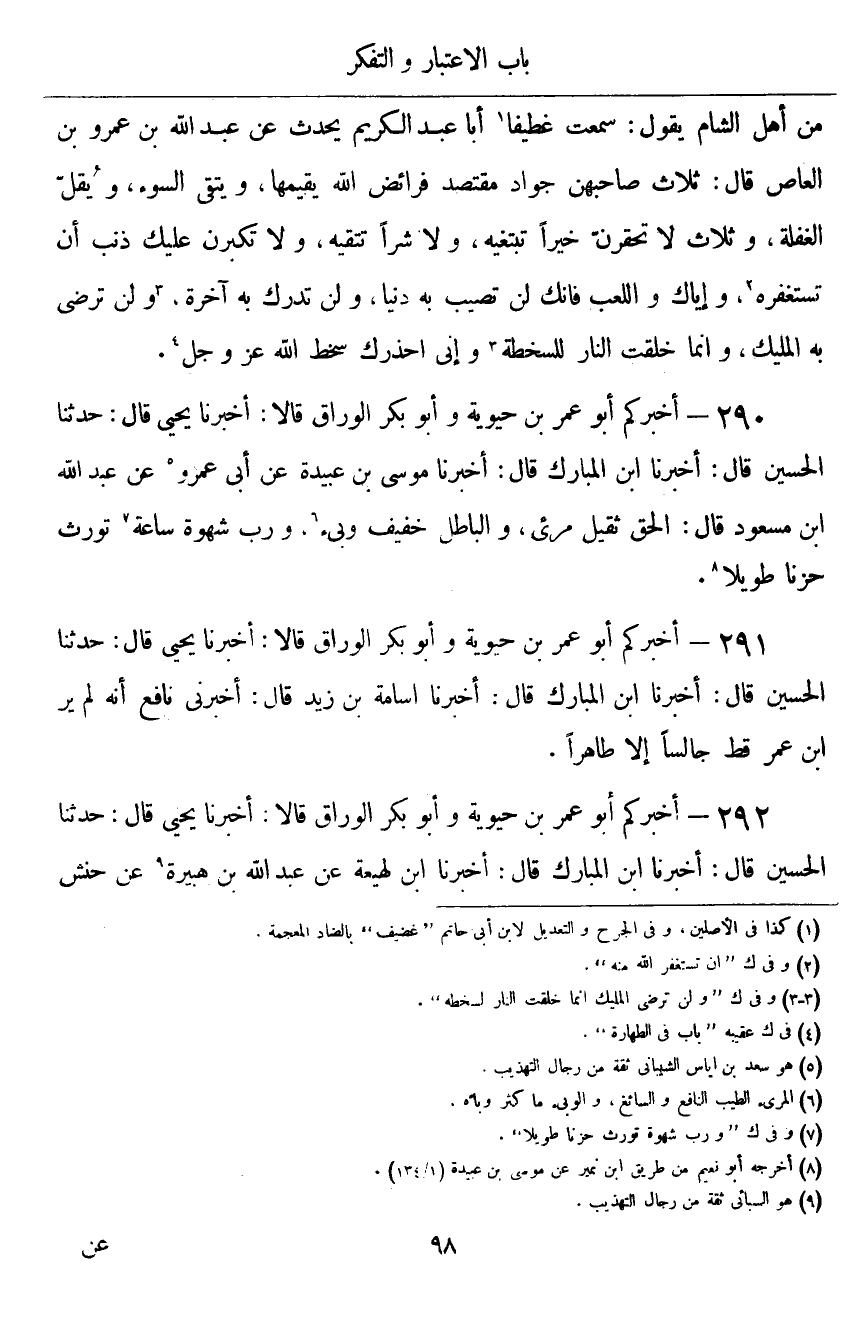 باب الاعتبار و التفكر
من أهل الشام يقول: سمعت غطيفا١ أبا عبد الكريم يحدث عن عبد الله بن عمرو بن
العاص قال: ثلاث صاحبهن جواد مقتصد فرائض الله يقيمها، و يتقى السوء، و يُقلّ
الغفلة، و ثلاث لا تحقرنّ خيراً تبتغيه، و لا شراً تتقيه، و لا تكبرن عليك ذنب أن
تستغفره٢، و إياك و اللعب فانك لن تصيب به دنيا، و لن تدرك به آخرة، ٣و لن ترضى
به المليك، و انما خلقت النار للسخطة٣ و إنى احذرك سخط الله عز و جل٤.
٢٩٠ – أخبركم أبو عمر بن حيوية و أبو بكر الوراق قالا: أخبرنا يحيى قال: حدثنا
الحسين قال: أخبرنا ابن المبارك قال: أخبرنا موسى بن عبيدة عن أبى عمرو٥ عن عبد الله
ابن مسعود قال: الحق ثقيل مرئ، و الباطل خفيف وبىء٦. و رب شهوة ساعة٧ تورث
حزنا طويلا٨.
٢٩١ – أخبركم أبو عمر بن حيوية و أبو بكر الوراق قالا: أخبرنا يحيى قال: حدثنا
الحسين قال: أخبرنا ابن المبارك قال: أخبرنا اسامة بن زيد قال: أخبرنى نافع أنه لم ير
ابن عمر قط جالساً إلا طاهراً.
٢٩٢ – أخبركم أبو عمر بن حيوية و أبو بكر الوراق قالا: أخبرنا يحيى قال: حدثنا
الحسين قال: أخبرنا ابن المبارك قال: أخبرنا ابن لهيعة عن عبد الله بن هبيرة٩ عن حنش
(١) كذا فى الأصلين، و فى الجرح و التعديل لابن أبى حاتم ”غضيف“ بالضاد المعجمة.
(٢) و فى ك ”ان تستغفر الله منه“.
(٣-٣) و فى ك ”و لن ترضى المليك انما خلقت النار لسخطه“.
(٤) فى ك عقيبه ”باب فى الطهارة“.
(٥) هو سعد بن اياس الشيبانى ثقة من رجال التهذيب.
(٦) المرىء الطيب النافع و السائغ، و الوبىء ما كثر وباؤه.
(٧) و فى ك ”و رب شهوة تورث حزنا طويلا“.
(٨) أخرجه أبو نعيم من طريق ابن نمير عن موسى بن عبيدة (١/ ١٣٤).
(٩) هو السبائى ثقة من رجال التهذيب.
٩٨
عن